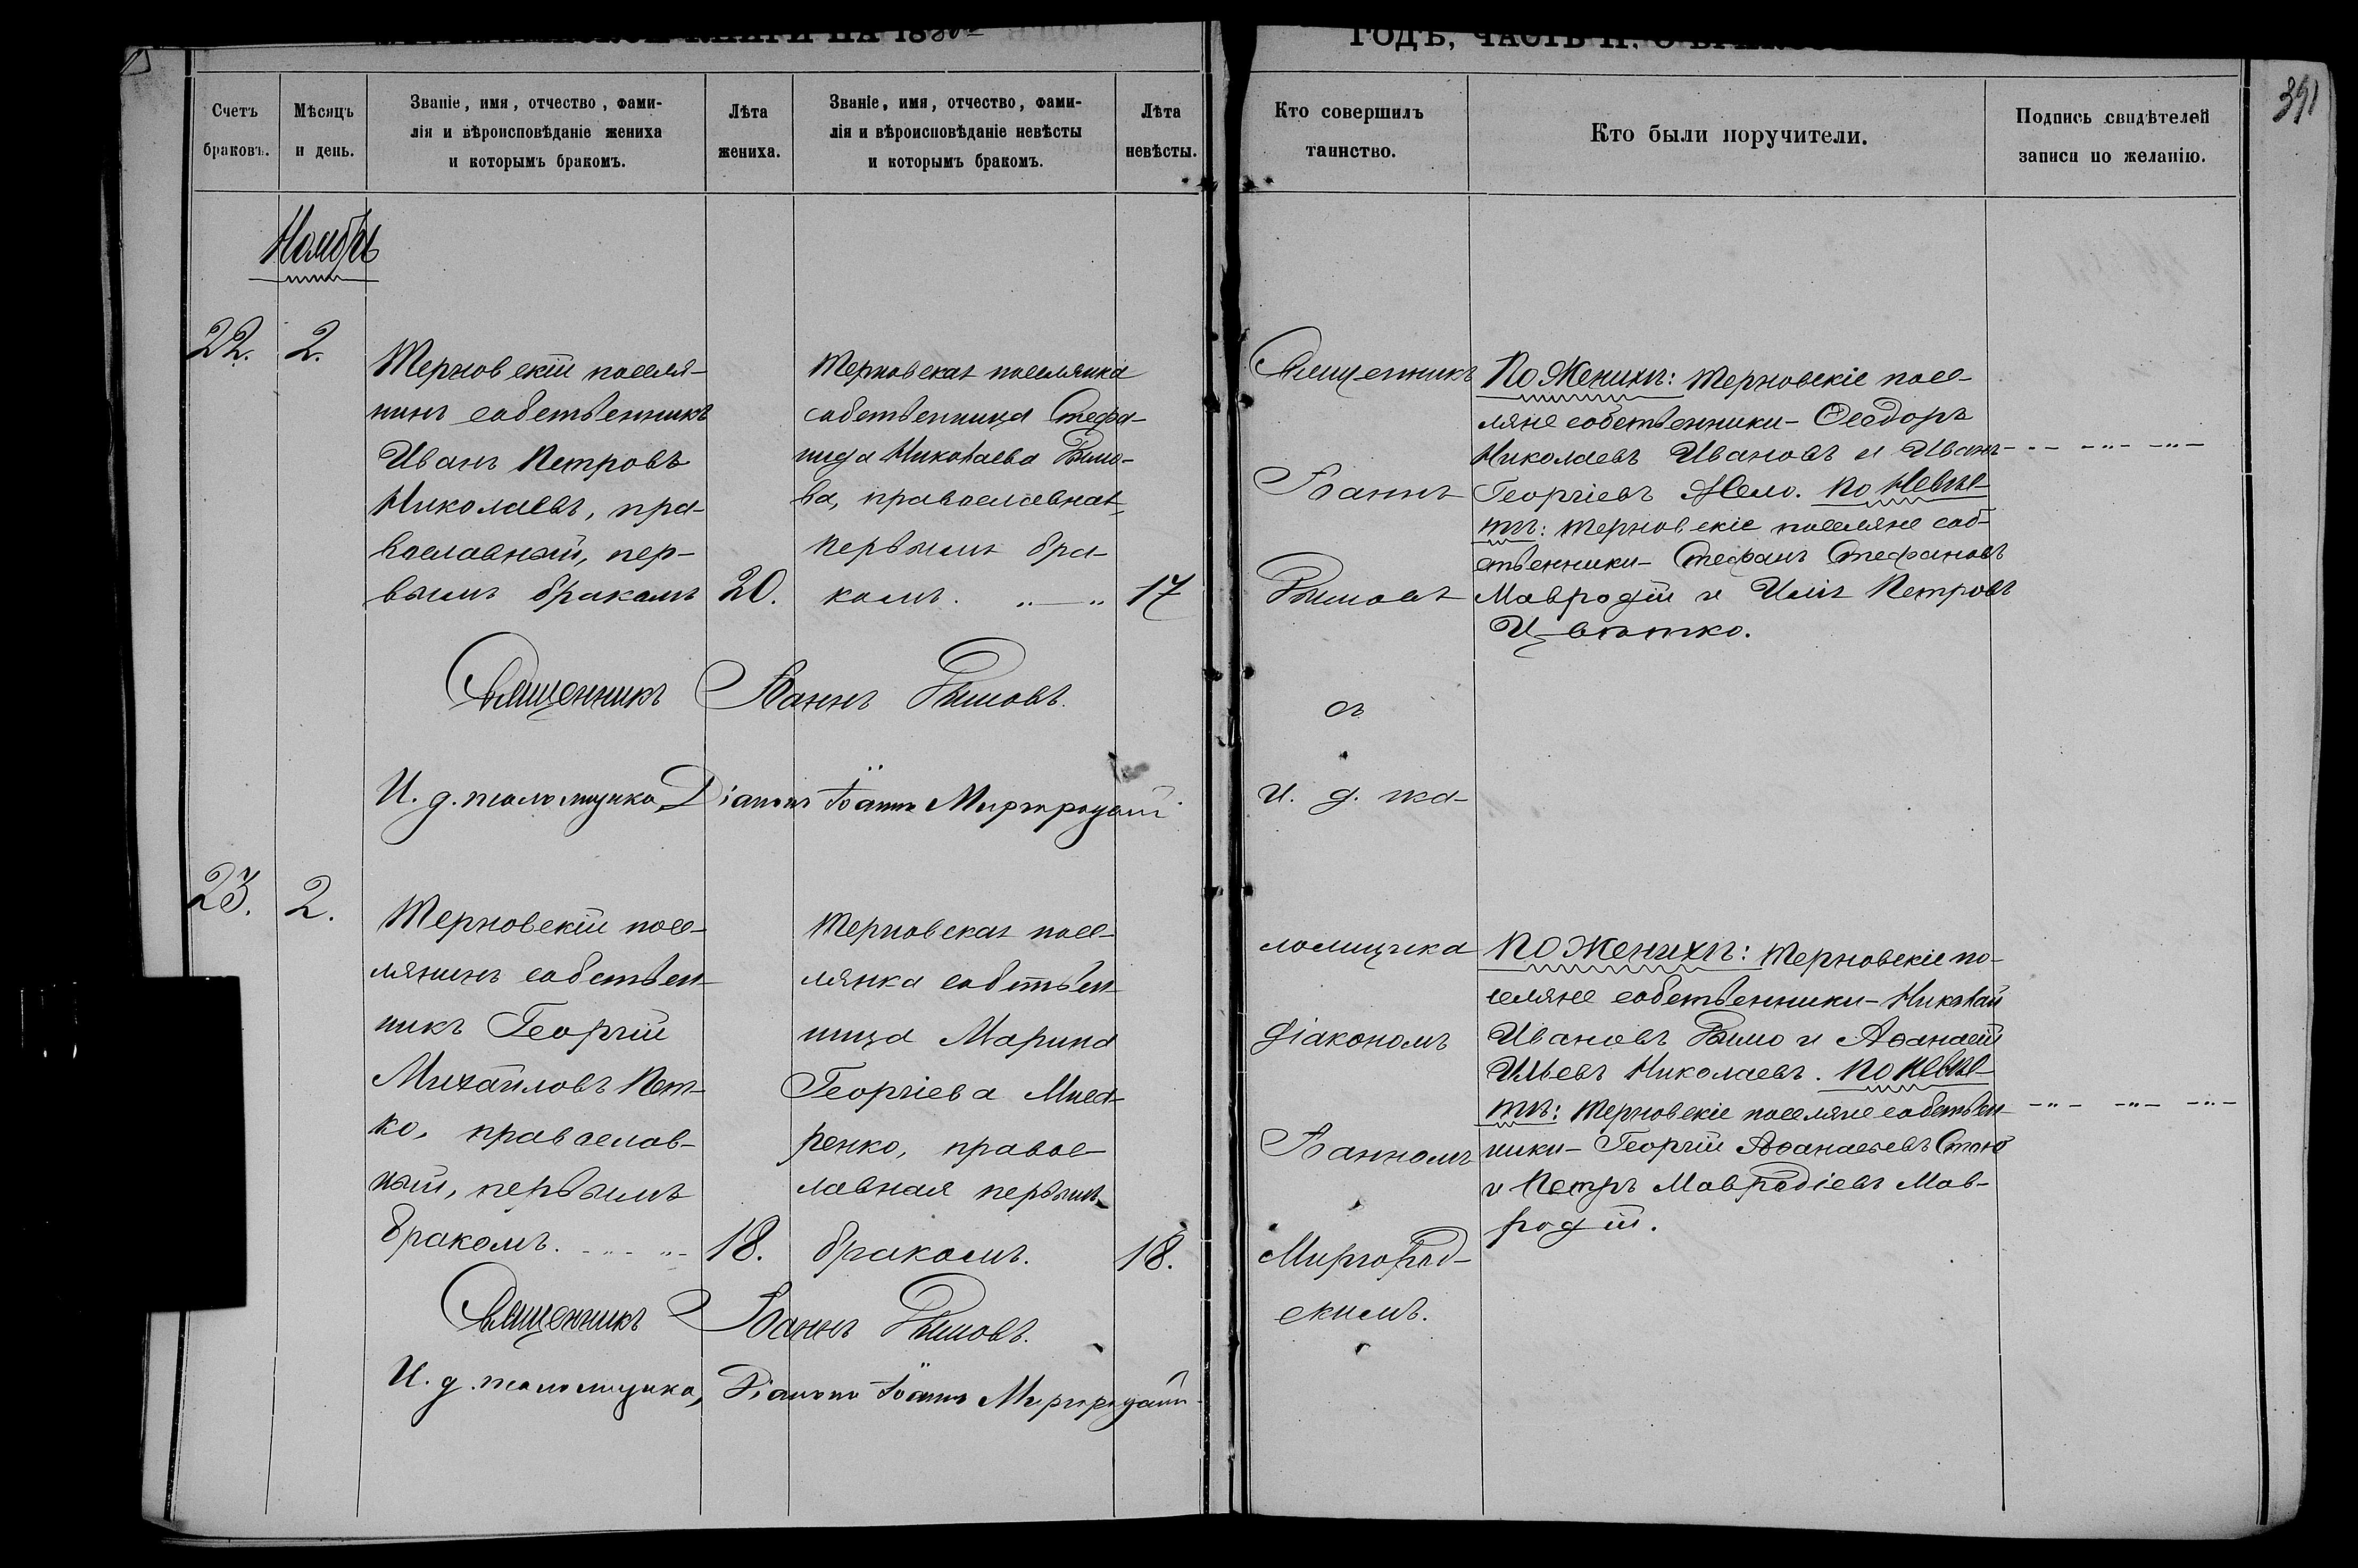 КНИГИ НА 188
ГОДЪ, ЧАСТЬ II.
391
Счетъ браковъ.
Мѣсяцъ и день.
Званіе, имя, отчество, фами-
лія и вѣроисповѣданіе жениха
и которымъ бракомъ.
Лѣта жениха.
Званіе, имя, отчество, фами-
лія и вѣроисповѣданіе невѣсты
и которымъ бракомъ.
Лѣта невѣсты.
Кто совершилъ
таинство.
Кто были поручители.
Подпись свидѣтелей
записи по желанію.
Ноябрь
22.
2.
Терновскій поселя-
нинъ собственникъ
Иванъ Петровъ
Николаевъ, пра-
вославный, пер-
вымъ бракомъ
20.
Терновская поселянка
собственница Стефа-
нида Николаева
ва, православная,
первымъ бра-
комъ.
17
Священникъ
Іоаннъ
По Женихѣ: Терновскіе посе-
ляне собственники - Ѳеодоръ
Николаевъ Ивановъ и Иванъ
Георгіевъ По Невѣс-
тѣ: Терновскіе поселяне соб-
ственники - Стефанъ Стефановъ
Мавродій и Илія Петровъ
Цвѣтко.
Священникъ Іоаннъ
И. д. псаломщика Діаконъ Іоаннъ Миргородскій
съ
и. д. пса-
23.
2.
Терновскій посе-
лянинъ собствен-
никъ Георгій
Михайловъ Пет-
ко, православ-
ный, первымъ
бракомъ.
18.
Терновская посе-
лянка собствен-
ница Марина
Георгіева
ренко, правос-
лавная первымъ
бракомъ.
18.
ломщика
діакономъ
Іоанномъ
Миргород-
скимъ.
По Женихѣ: Терновскіе по-
селяне собственники - Николай
Ивановъ и Аѳанасій
Ильевъ Николаевъ. По Невѣс-
тѣ: Терновскіе поселяне собствен-
ники - Георгій Аѳанасьевъ
и Петръ Мавродіевъ Мав-
родій.
Священникъ Іоаннъ
И. д. псаломщика, Діаконъ Іоаннъ Миргородскій